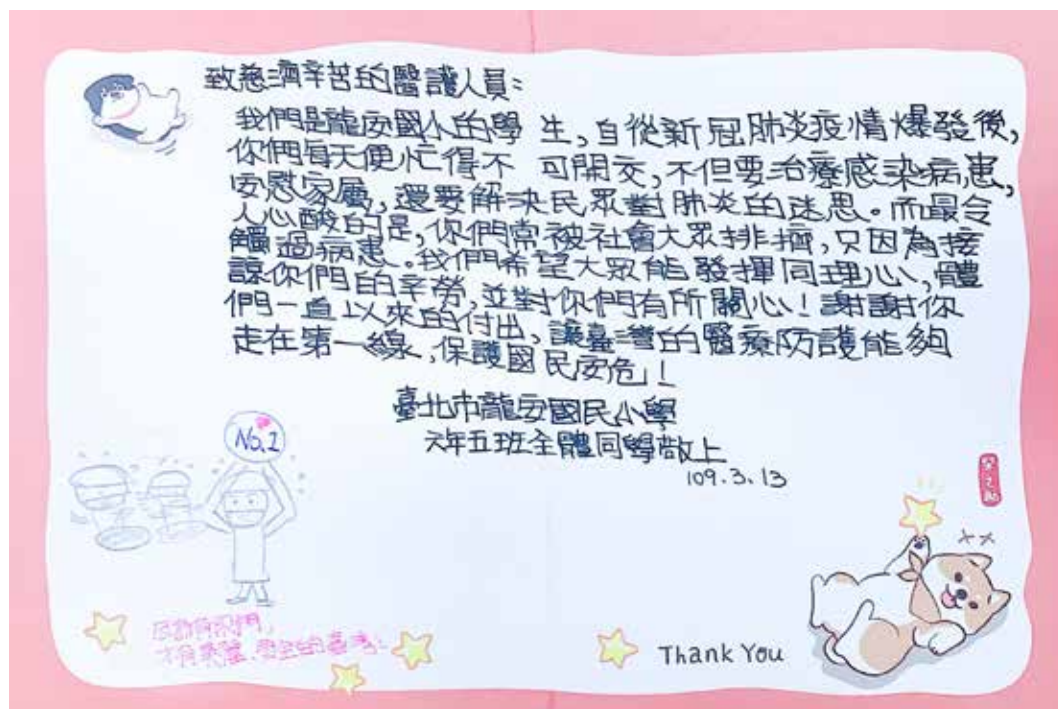 致慈濟辛苦的醫護人員：
我們是龍安國小的學生，自從新冠肺炎疫情爆發後，
你們每天便忙得不可開交，不但要治療感染病患，
安慰家屬，還要解決民眾對肺炎的迷思。而最令
人心酸的是，你們常被社會大眾排擠，只因為接
觸過病患。我們希望大眾能發揮同理心，體
諒你們的辛勞，並對你們有所關心！謝謝你
們一直以來的付出，讓臺灣的醫療防護能夠
走在第一線，保護國民安危！
臺北市龍安國民小學
六年五班全體同學敬上
109.3.13
No.1
因為有你們，
才有美麗、安全的臺灣
Thank You